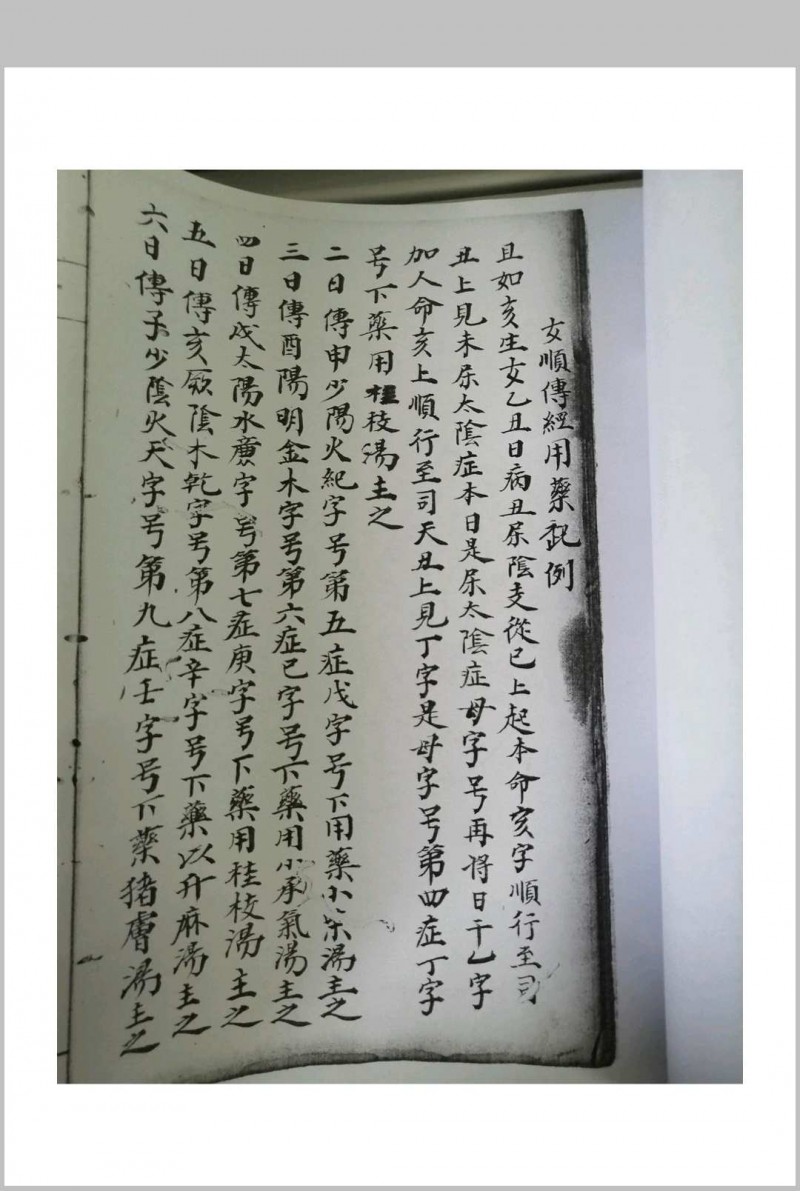 女順傳經用藥祝例
且如亥生女乙丑日病丑屬陰支從巳上起本命亥字順行至司
丑上見未屬太陰症本日是屬太陰症母字号再將日干乙字
加人命亥上順行至司天丑上見丁字是母字号第四症丁字
号下藥用桂枝湯主之
二日傳申少陽火紀字号第五症戊字号下用藥小柴湯主之
三日傳酉陽明金木字号第六症己字号下藥用小承氣湯主之
四日傳戌太陽水廣字号第七症庚字号下藥用桂枝湯主之
五日傳亥厥陰木乾字号第八症辛字号下藥以升麻湯主之
六日傳子少陰火天字号第九症壬字号下藥猪膚湯主之